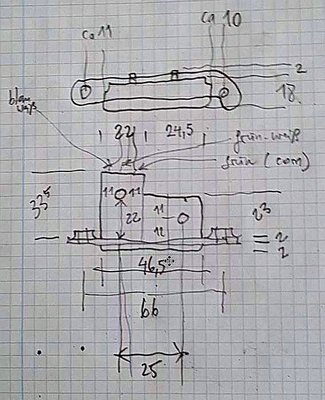 ca 11
ca 10
2
18
blau
weiß
22
24,5
grün-weiß
grün (com)
33⁵
11
11
22
11
11
23
2
2
46,5
66
25